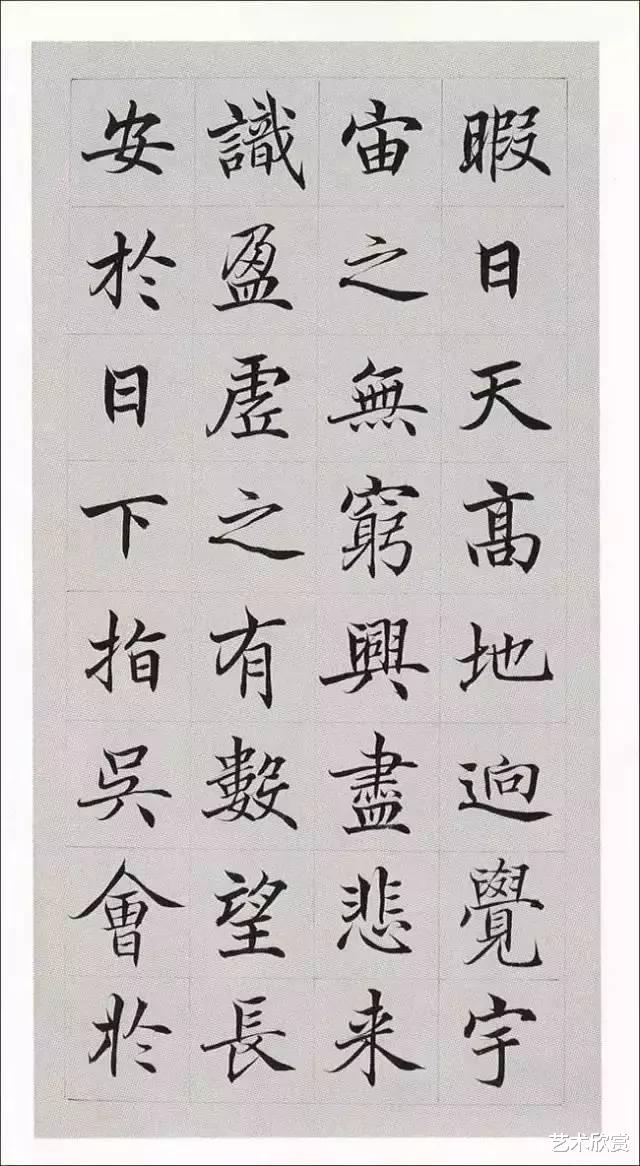 暇日天高地迥覺宇
宙之無窮興盡悲来
識盈虛之有數望長
安於日下指吳會於
艺术欣赏